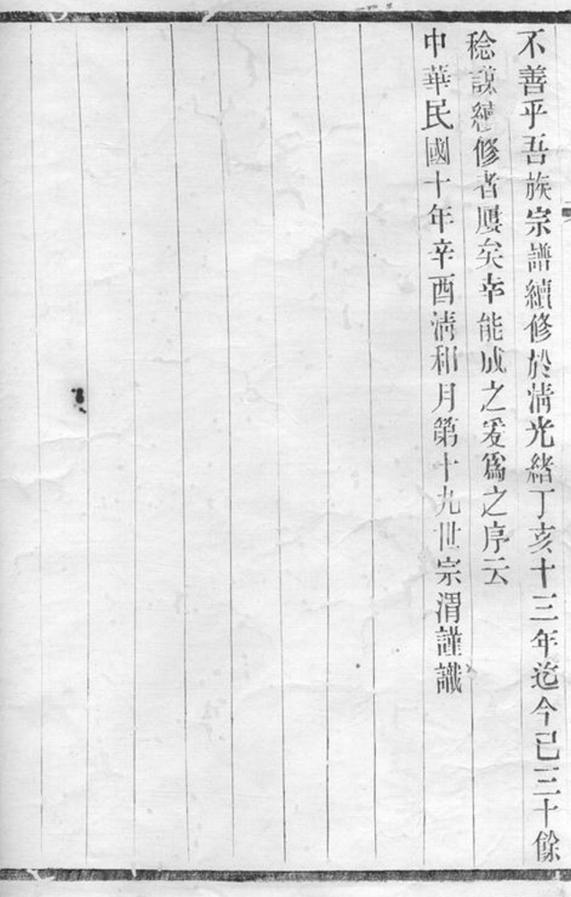 不善乎吾族宗譜續修於清光緒丁亥十三年迄今已三十餘
稔謀續修者屢矣幸能成之爰爲之序云
中華民國十年辛酉清和月第十九世宗渭謹識